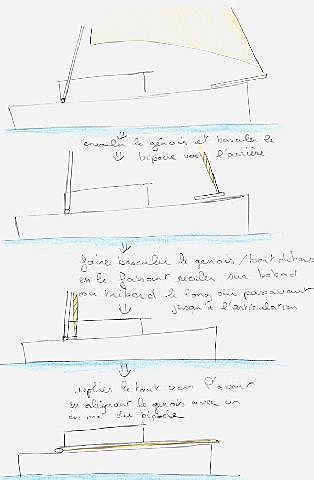 enrouler le genois et basculer le
bipode vers l'arrière
faire basculer le genois/bout dehors
en le faisant reculer sur babord
ou tribord le long du passavant
jusqu'à l'articulation
replier le tout vers l'avant
en alignant le genois avec un
des mat du bipode